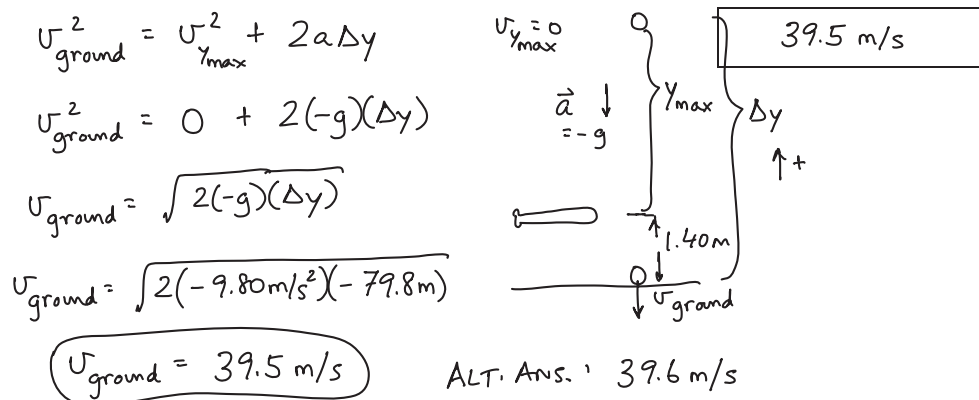 v²ground = v²ymax + 2aΔy
v²ground = 0 + 2(-g)(Δy)
vground = √2(-g)(Δy)
vground = √2(-9.80m/s²)(-79.8m)
vground = 39.5 m/s
vymax = 0
39.5 m/s
a⃗ ↓
= -g
ymax
Δy
↑ +
1.40m
vground
ALT. ANS.: 39.6 m/s